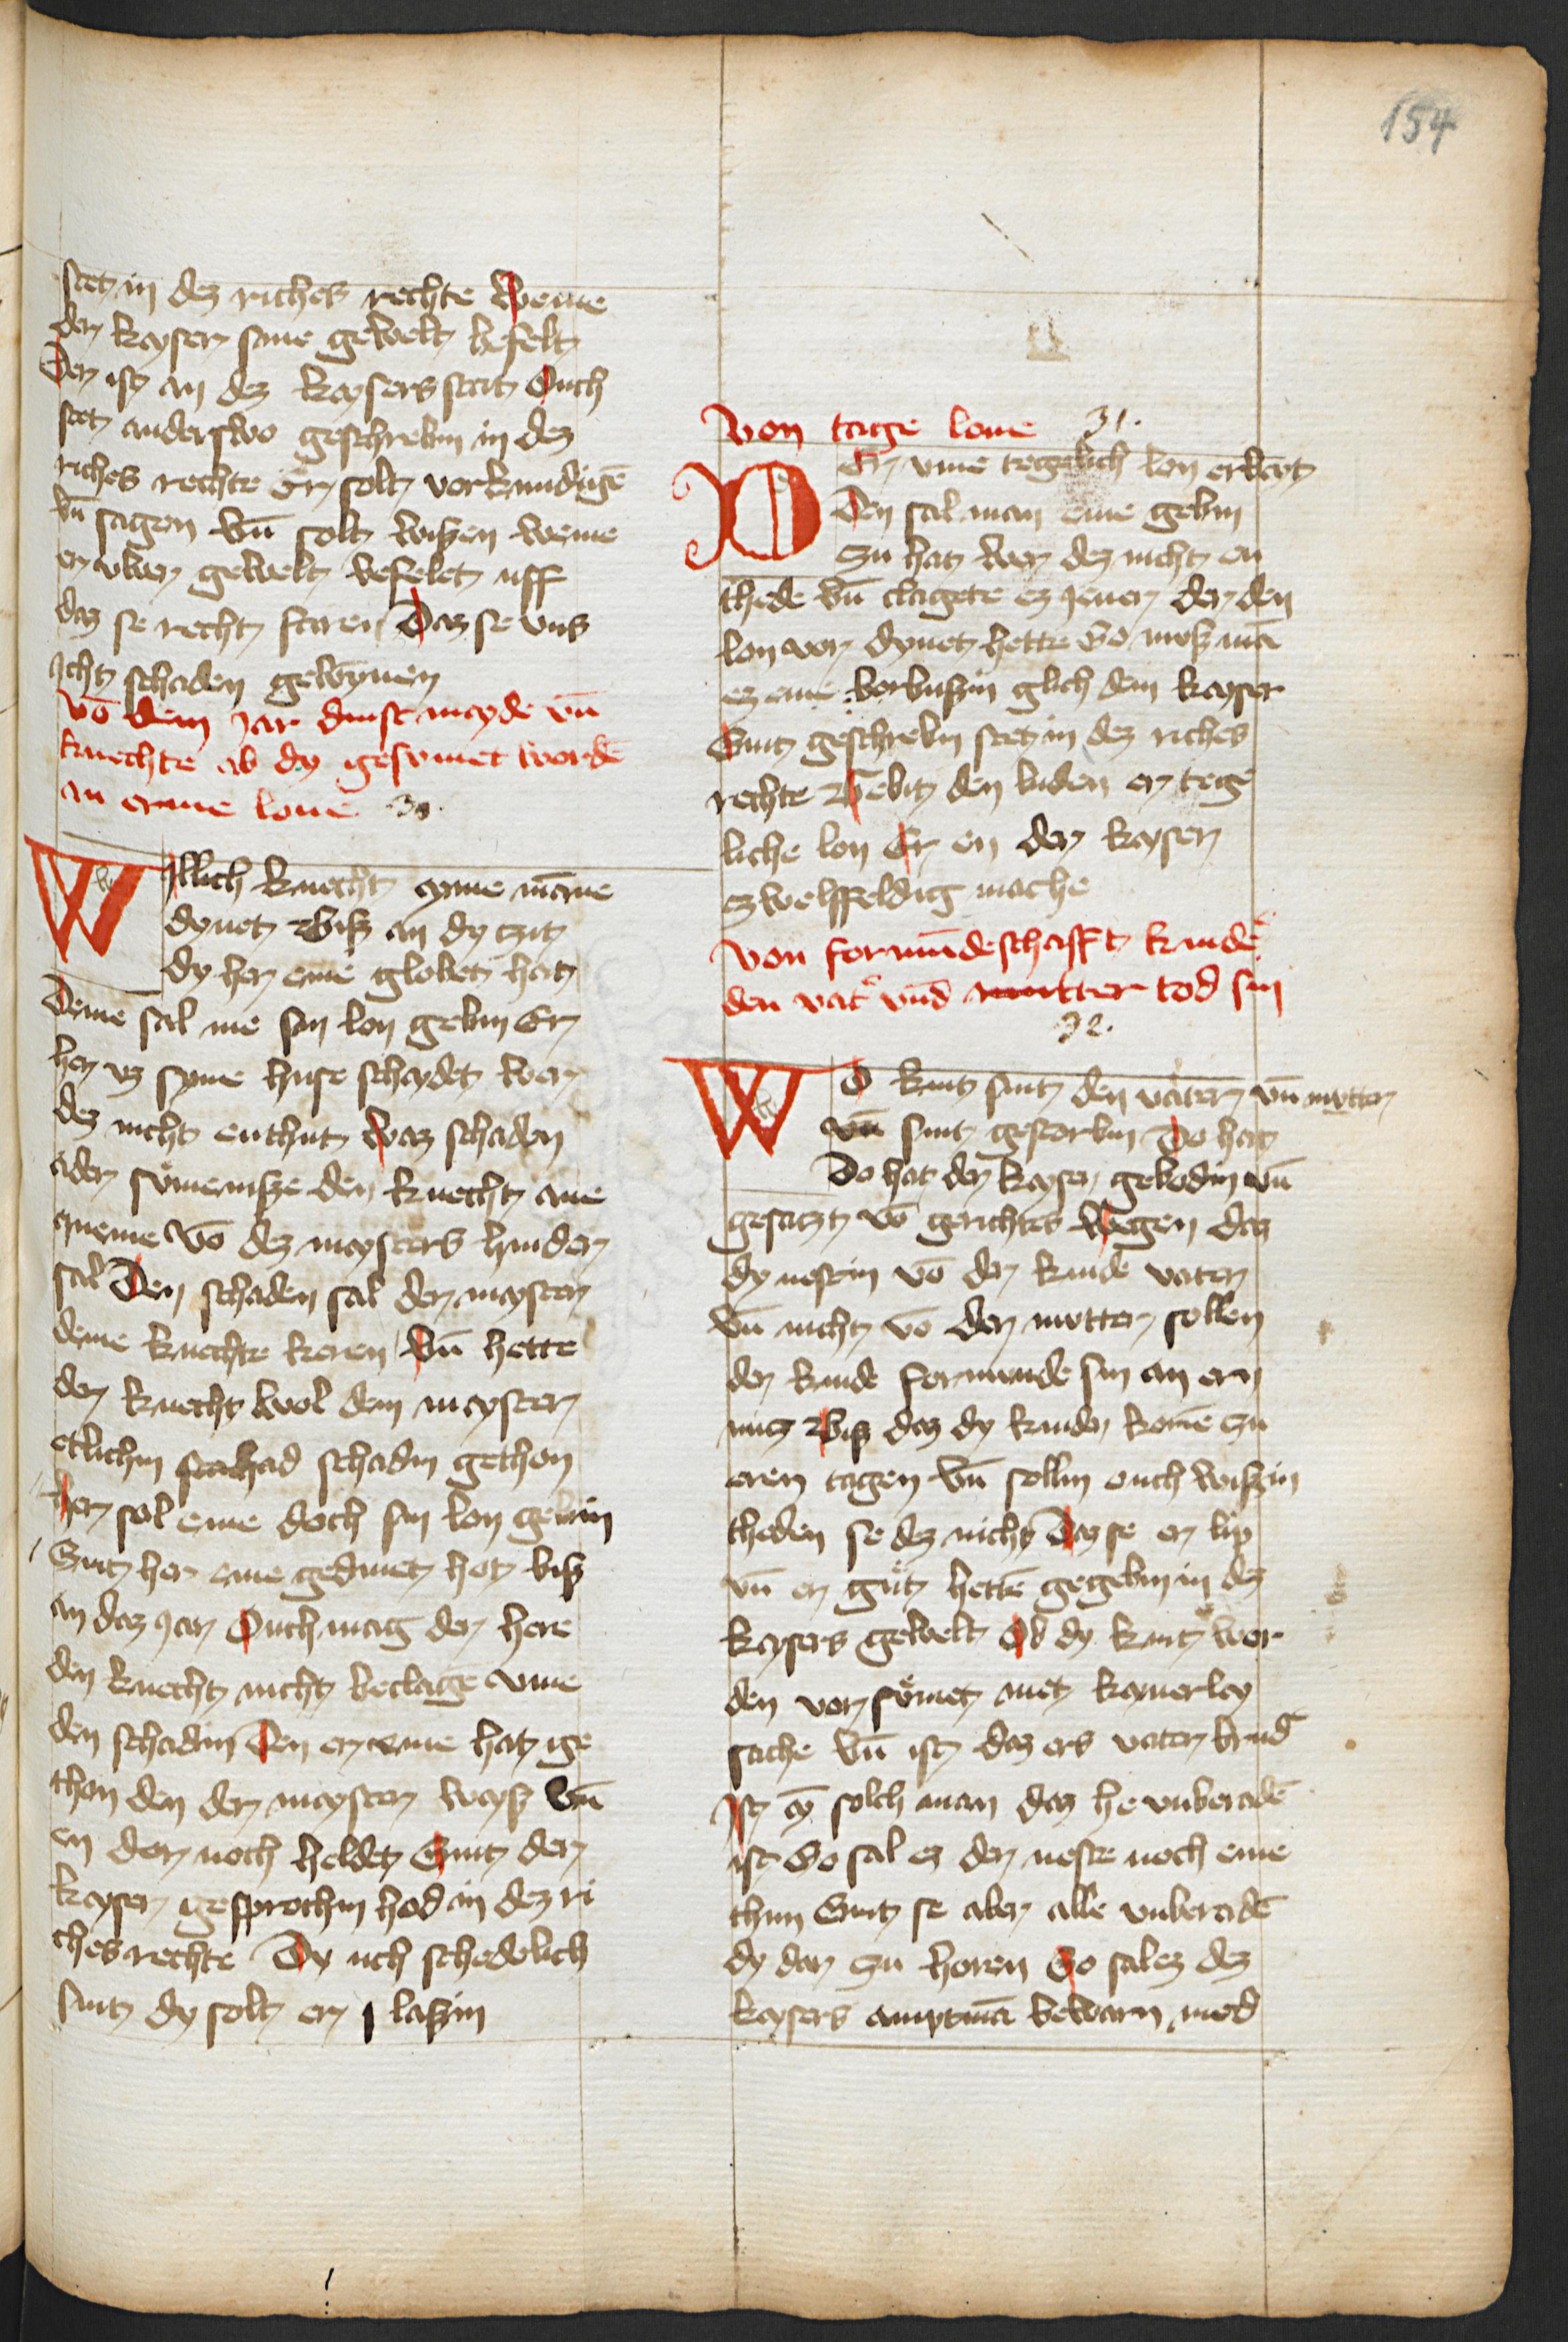 154
stet in dez riches rechte Weme
der kayser sine gewelt befelt
Der ist an dez kaysers stat Ouch
stet anderswo geschrebin in dez
riches rechte Er solt vorkundigē
vn̄ sagen vn̄ solt wißen weme
er uwer gewelt befelet uff
daz se recht faren Daz se uns
Icht schaden gewȳnen
Vō dem jar dinst mayde vn̄
knechte ab dy gesvmet wordē
an erme lone 30.
Wllich knecht eyme māne
dynet Biß an dy czit
dy her eme globet hat
Deme sal me sin lon gebin Er
her uz syme huse schaydet wer
dez nicht enthut waz schaden
ader sůmenisze den knecht ane
queme vō dez maysters hinder
sal Den schaden sal der mayster
deme knechte keren vn̄ hette
der knecht wol dem mayster
etlichin schadin gethon
her sol eme doch sin lon gebin
Sint her eme gedinet hot biß
an daz jar Ouch mag der here
den knecht nicht beclagē vme
den schadin Den er eme hat ge
thon den der mayster wayß vn̄
en dor noch heldet Sint der
kayser gesprochin hod in dez ri
ches rechte Dy uch schedelich
sint dy solt er laßin
Von tage lone 31.
DEr vme tegelich lon erbayt
Den sal man eme gebin
Zu hat wer dez nicht en
thede vn̄ clagete ez jener der den
lon vor dynet hette So muß mā
ez eme vorbußin glich dem kayser
Sint geschrebin stet in dez riches
rechte Gebit den luden er tege
liche lon Er en der kayser
czwelffeldig mache
Von formūdeschafft kindē
den vat͛ vnd mutter tod sin
32.
WO kint sint den vater vn̄ mutter
sint gestorbin Do hat
Do hat der kayser gebodin vn̄
gesaczt vō gerichtes wegen daz
dy nestin vō der kinde vater
vn̄ nicht vō der mutter sollen
der kinde formunde sin an ern
nucz Biß daz dy kinder komē zu
eren tagen vn̄ sollin ouch wißin
theden se dez nicht Daz se er lip
vn̄ er gůt hettē gegebin in dez
kaysers gewelt Ob dy kint wor
den vor sůmet met kaynerley
sache vn̄ ist daz ers vater brud͛
Ist eȳ solch man daz he unberadē
ist So sal ez der neste noch eme
thun Sint se aber alle unberadē
dy dar zu horen So sal ez dez
kaysers amptmā bewarn med